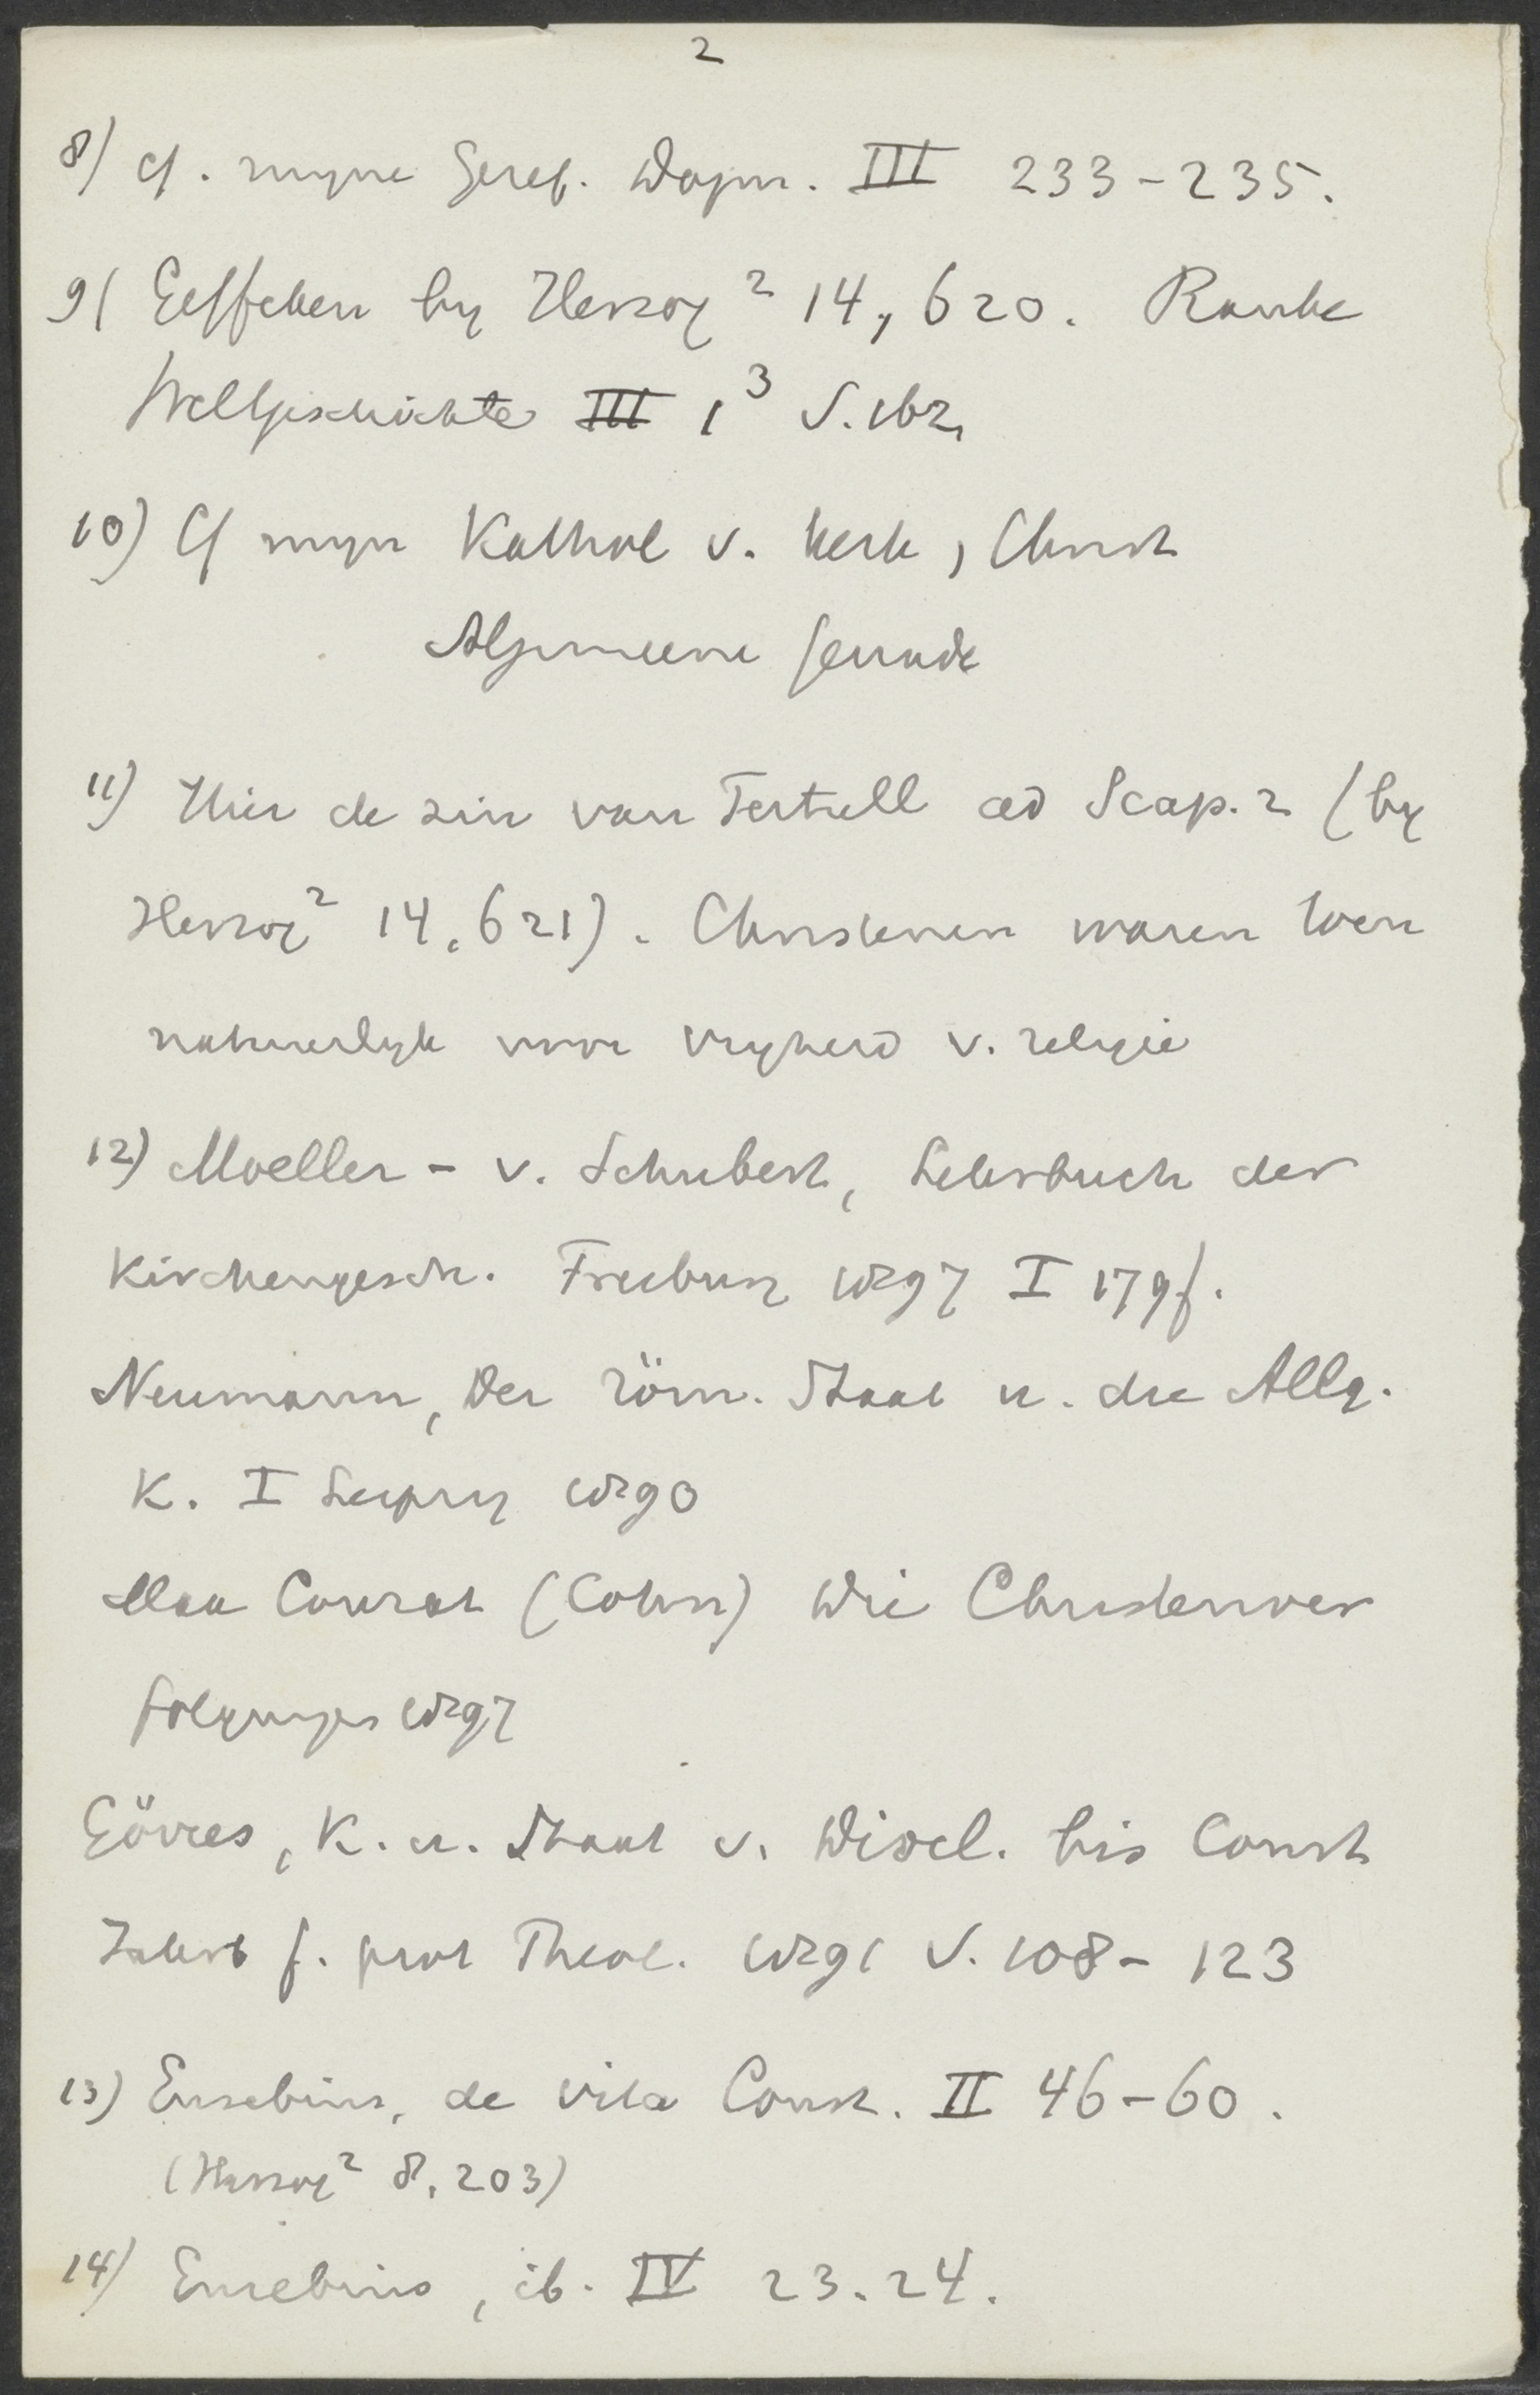 2
8) cf. myne Geref. Dogm. III 233-235.
9) Geffcken by Herzog² 14, 620. Ranke
Weltgeschichte III 1³ S. 162,
10) Cf myn Kathol v. Kerk, Christ
Algemeene Genade
11) Hier de zin van Tertull ad Scap. 2 (by
Herzog² 14, 621). Christenen waren toen
natuurlyk voor vryheid v. religie
12) Moeller - v. Schubert, Lehrbuch der
Kirchengesch. Freiburg 1897 I 179f.
Neumann, Der röm. Staat u. die Allg.
K. I Leipzig 1890
Max Conrat (Cohn) Die Christenver
folgungen 1897
Görres, K. u. Staat v. Diocl. bis Const
Jahrb f. prot Theol. 1891 S. 108-123
13) Eusebius, de vita Const. II 46-60.
(Herzog² 8, 203)
14) Eusebius, ib. IV 23. 24.